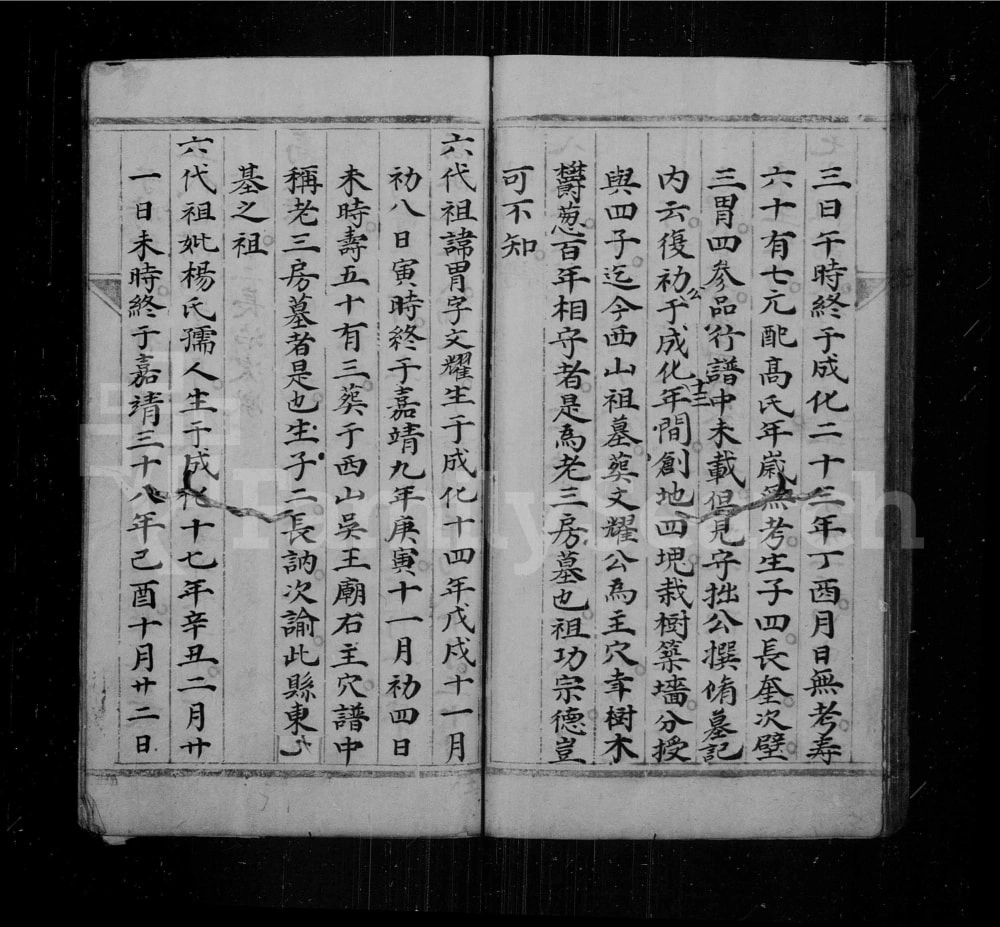 三日午時終于成化二十三年丁酉月日無考壽
六十有七元配髙氏年嵗無考生子四長奎次壁
三胃四參品行譜中未載但見守拙公撰脩墓記
内云復初公于成化十三年間創地四塊栽樹築墻分授
與四子迄今西山祖墓葵文耀公為主穴幸樹木
欝葱百年相守者是為老三房墓也祖功宗德豈
可不知
六代祖諱胃字文耀生于成化十四年戊戌十一月
初八日寅時終于嘉靖九年庚寅十一月初四日
未時壽五十有三葵于西山吳王廟右主穴譜中
稱老三房墓者是也生子二長訥次諭此縣東
基之祖
六代祖妣楊氏孺人生于成化十七年辛丑二月廿
一日未時終于嘉靖三十八年己酉十月廿二日
FamilySearch